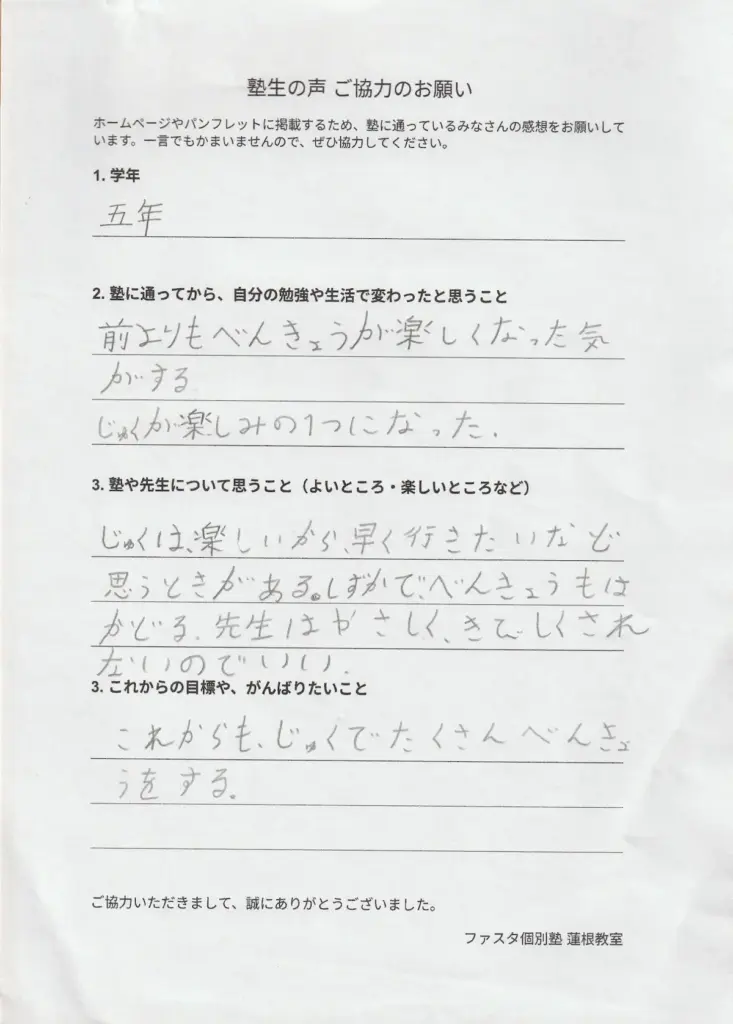 塾生の声 ご協力のお願い
ホームページやパンフレットに掲載するため、塾に通っているみなさんの感想をお願いして
います。一言でもかまいませんので、ぜひ協力してください。
1. 学年
五年
2. 塾に通ってから、自分の勉強や生活で変わったと思うこと
前よりもべんきょうが楽しくなった気
がする
じゅくが楽しみの1つになった.
3. 塾や先生について思うこと（よいところ・楽しいところなど）
じゅくは、楽しいから、早く行きたいなと
思うときがある。しずかで、べんきょうもは
かどる.先生はやさしく、きびしくされ
ないのでいい.
3. これからの目標や、がんばりたいこと
これからも、じゅくでたくさんべんきょ
うをする。
ご協力いただきまして、誠にありがとうございました。
ファスタ個別塾 蓮根教室